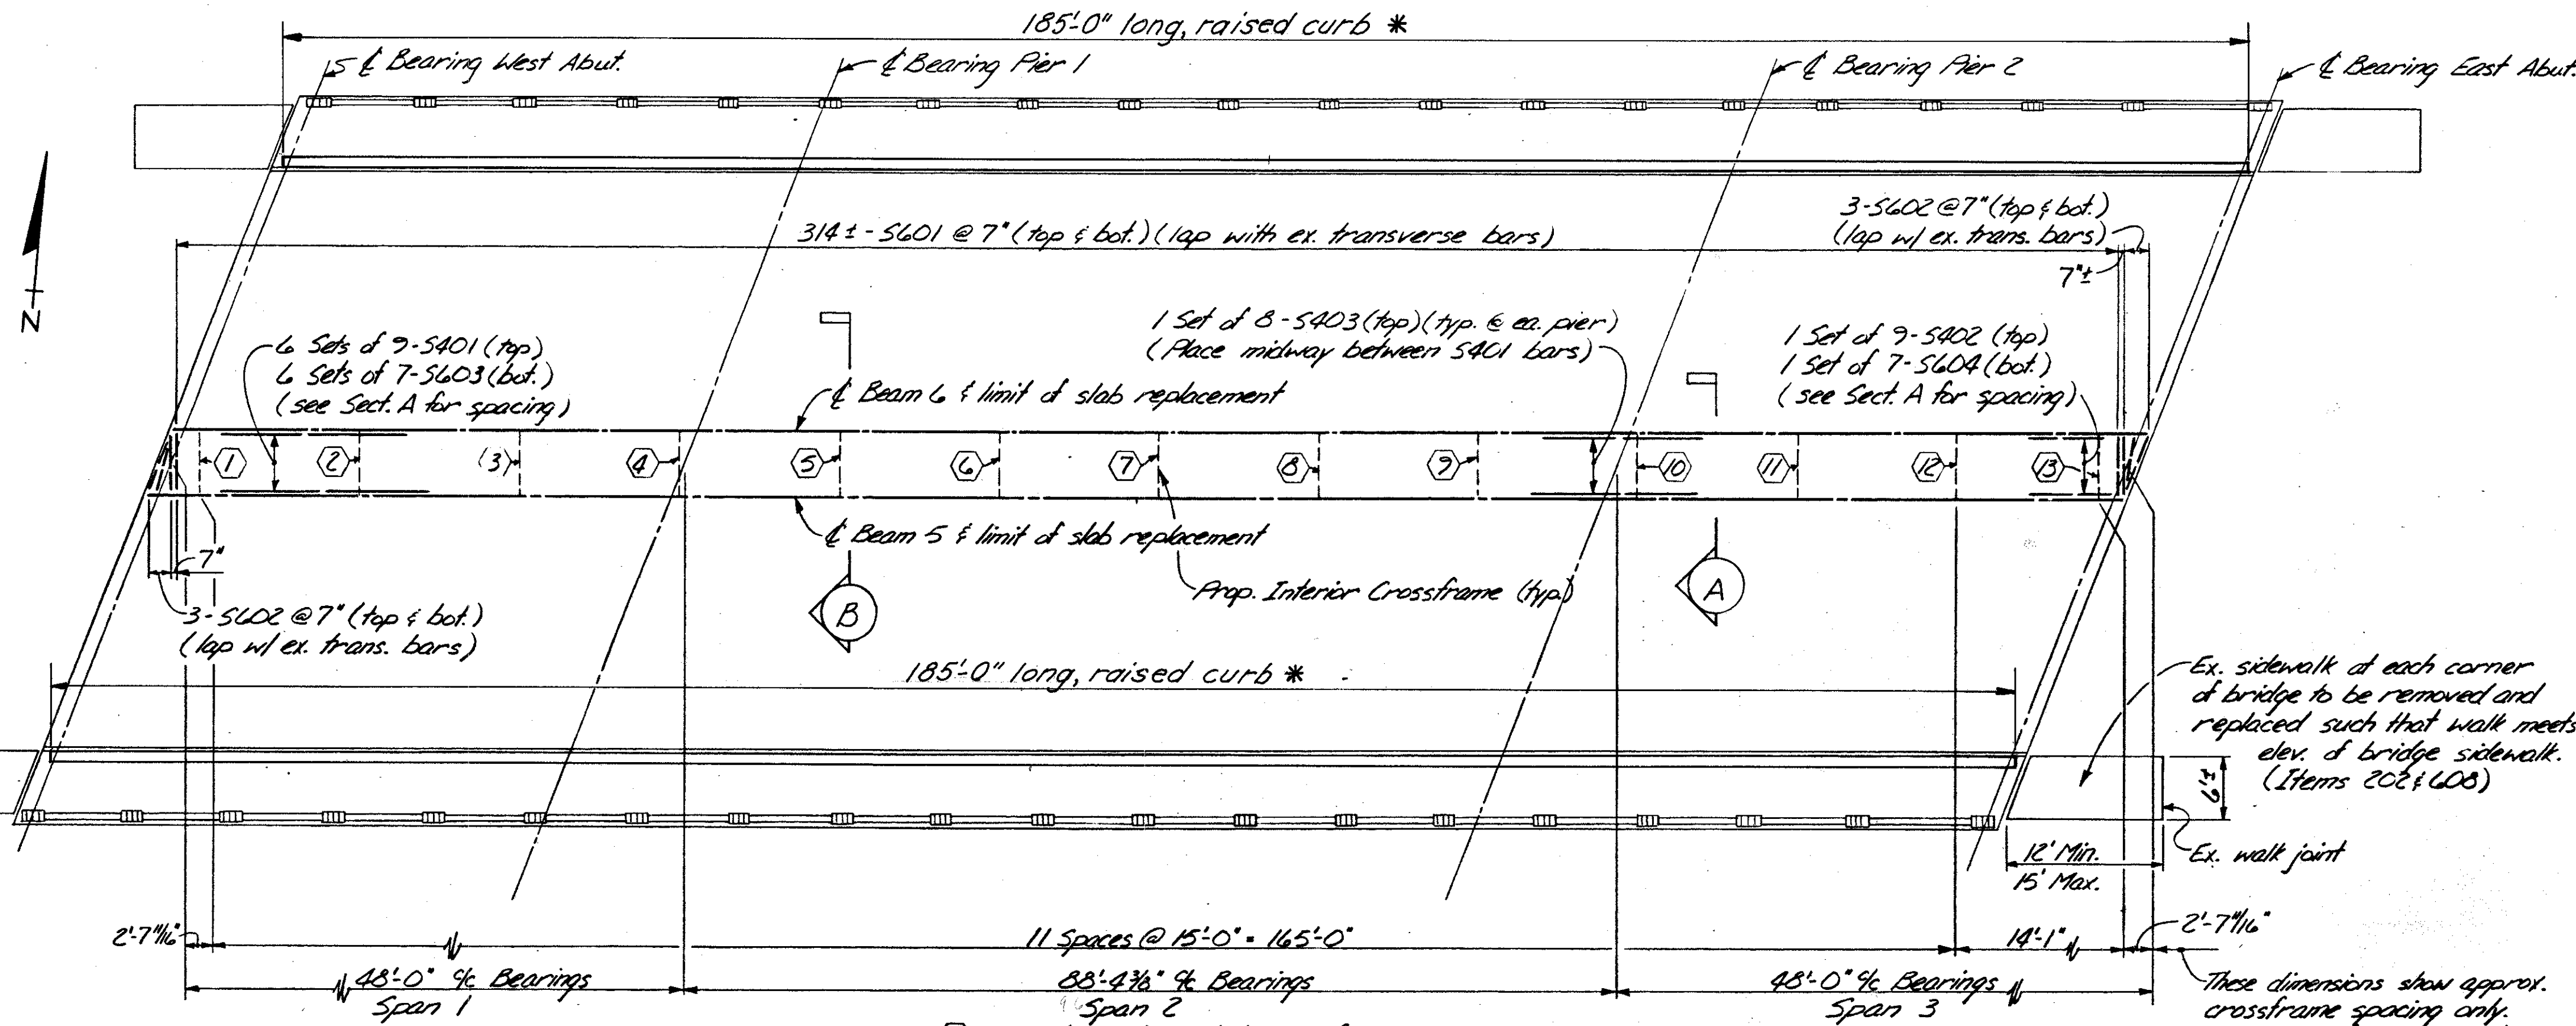 185'-0" long, raised curb *
℄ Bearing West Abut.
℄ Bearing Pier 1
℄ Bearing Pier 2
℄ Bearing East Abut.
N
314± - S601 @ 7" (top & bot.) (lap with ex. transverse bars)
3-S602 @ 7" (top & bot.)
(lap w/ ex. trans. bars)
7"±
6 Sets of 9-S401 (top)
6 Sets of 7-S603 (bot.)
(see Sect. A for spacing)
1 Set of 8-S403 (top) (typ. @ ea. pier)
(Place midway between S401 bars)
1 Set of 9-S402 (top)
1 Set of 7-S604 (bot.)
(see Sect. A for spacing)
℄ Beam 6 & limit of slab replacement
1 2 3 4 5 6 7 8 9 10 11 12 13
℄ Beam 5 & limit of slab replacement
7"
Prop. Interior Crossframe (typ.)
B
A
3-S602 @ 7" (top & bot.)
(lap w/ ex. trans. bars)
185'-0" long, raised curb *
Ex. sidewalk at each corner
of bridge to be removed and
replaced such that walk meets
elev. of bridge sidewalk.
(Items 202 & 608)
6'±
Ex. walk joint
12' Min.
15' Max.
2'-7 11/16"
11 Spaces @ 15'-0" = 165'-0"
14'-1"
2'-7 11/16"
48'-0" c/c Bearings
Span 1
88'-4 3/8" c/c Bearings
Span 2
48'-0" c/c Bearings
Span 3
These dimensions show approx.
crossframe spacing only.